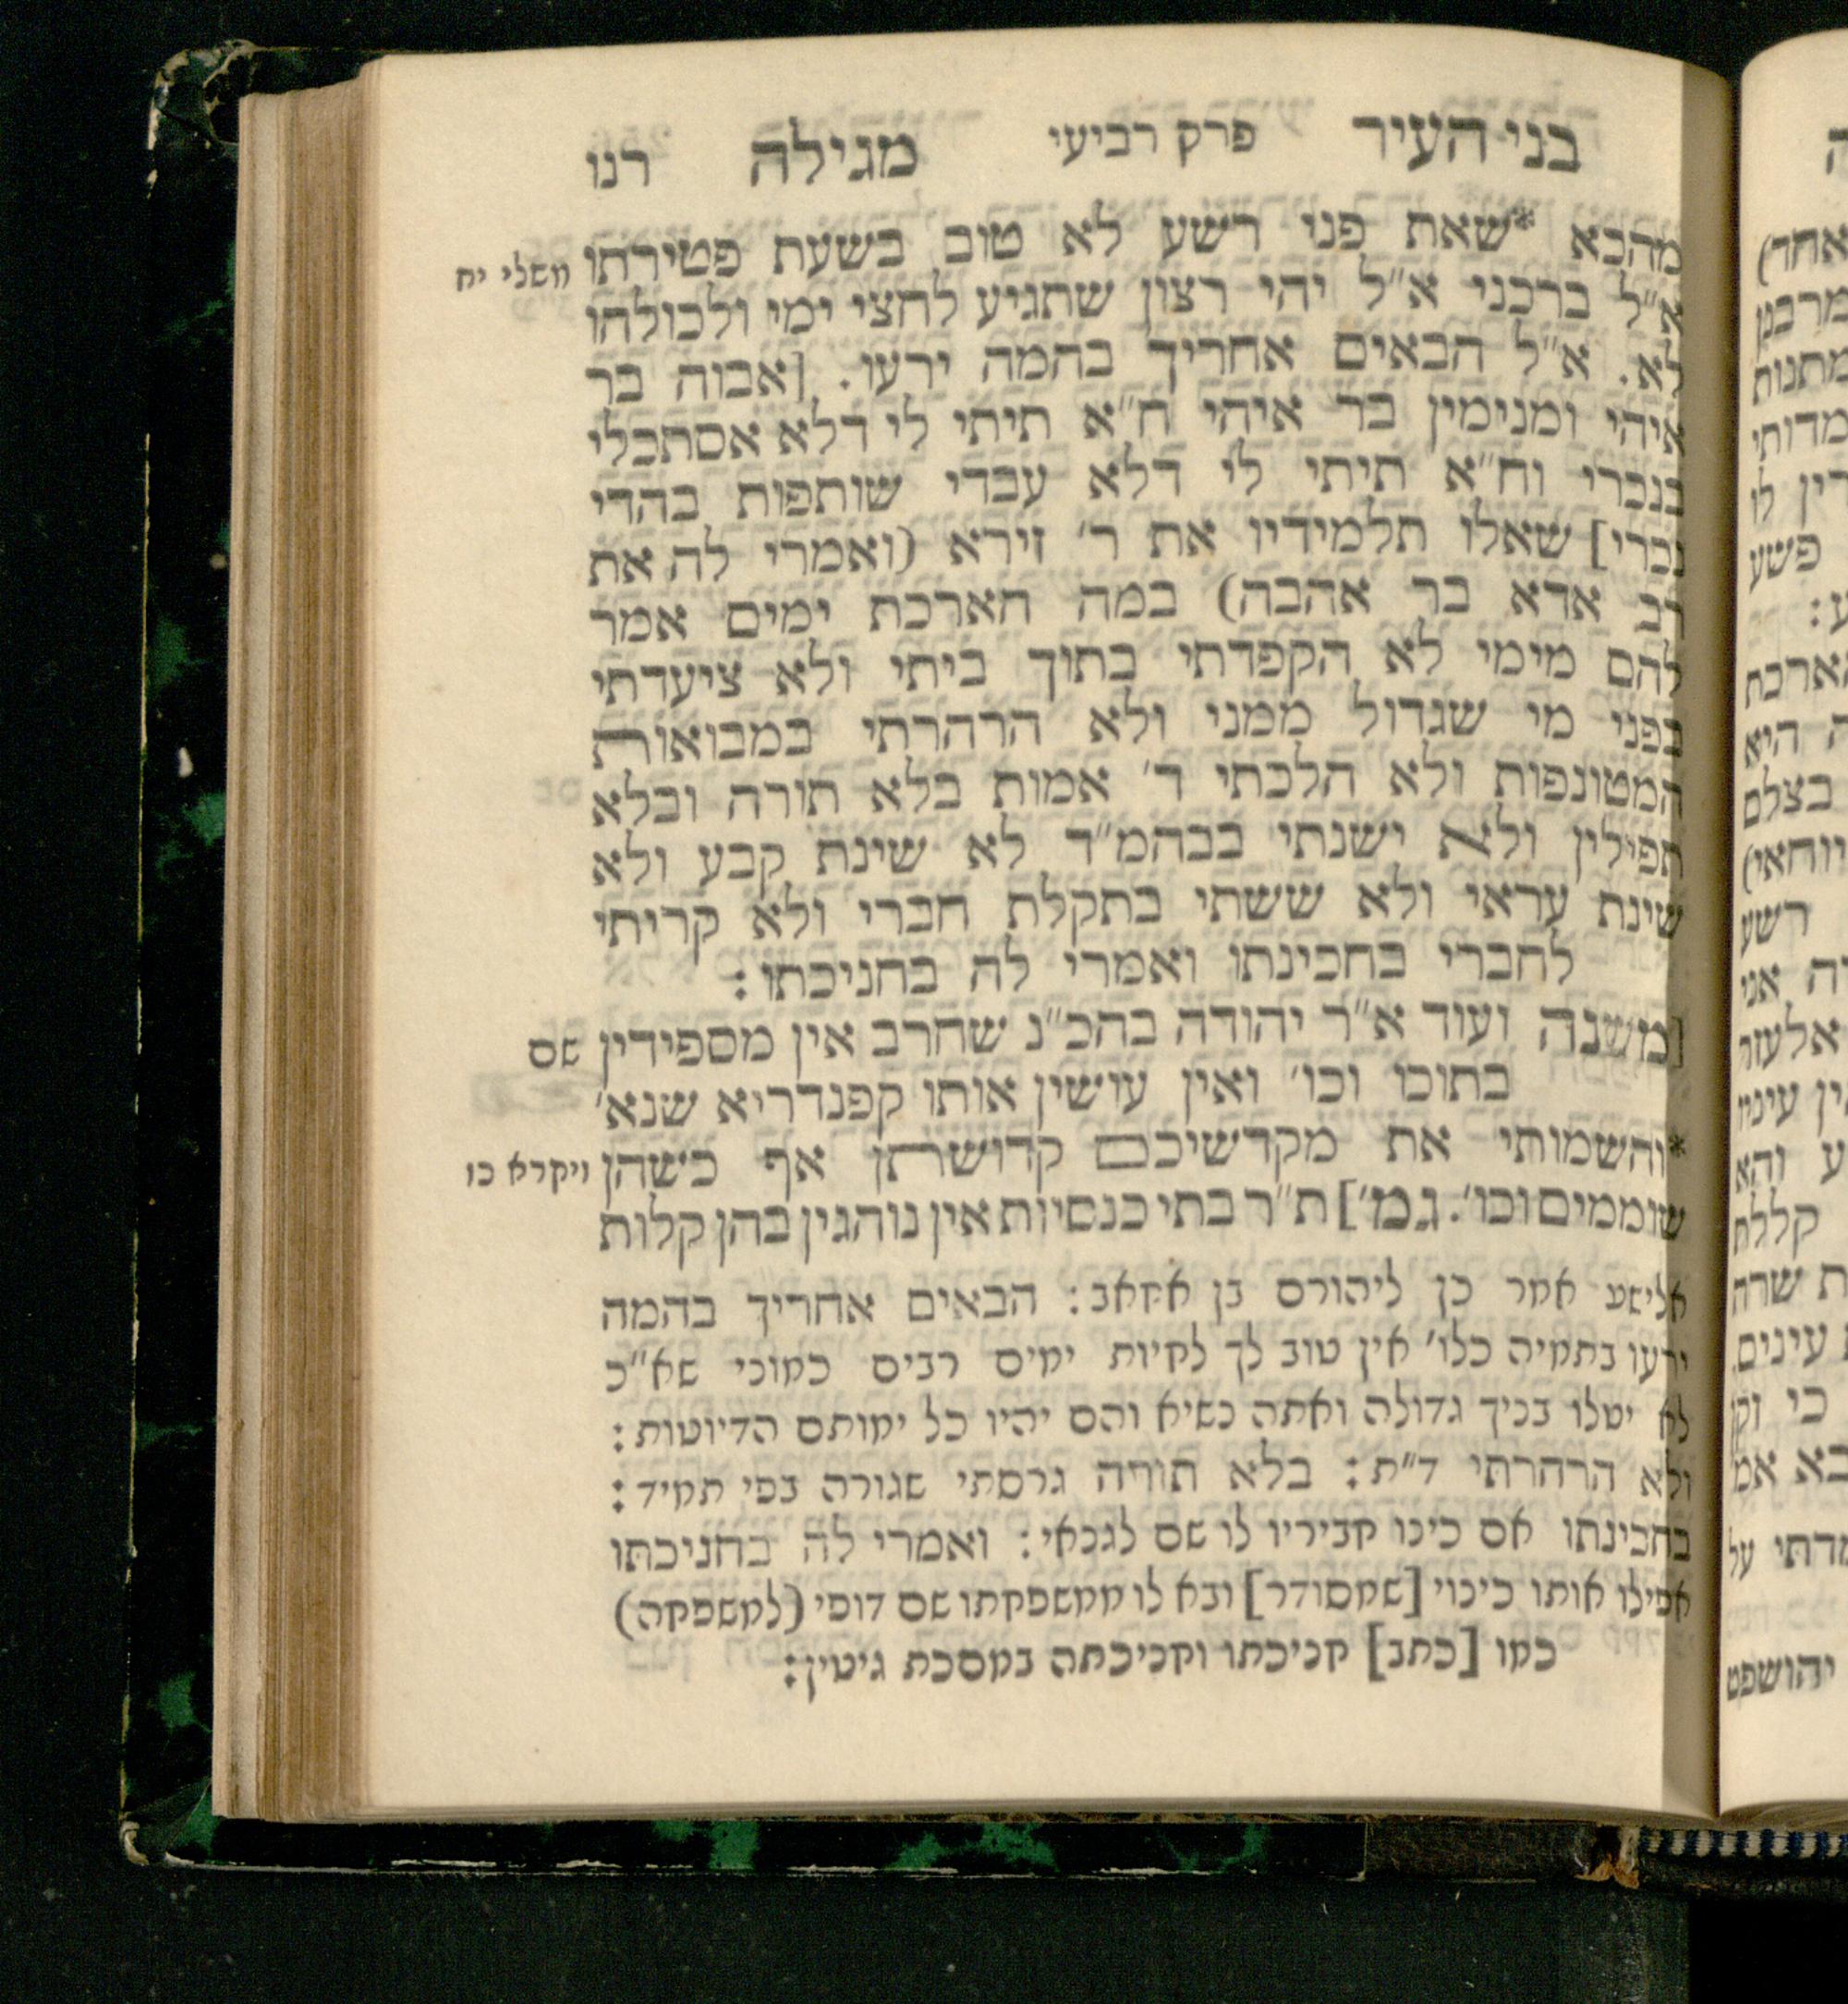 בני העיר פרק רביעי מגילה רנו
מהכא *שאת פני רשע לא טוב בשעת פטירתו משלי יח
א״ל ברכני א״ל יהי רצון שתגיע לחצי ימי ולכולהו
לא. א״ל הבאים אחריך בהמה ירעו. [אבוה בר
איהי ומנימין בר איהי ח״א תיתי לי דלא אסתכלי
בנכרי וח״א תיתי לי דלא עבדי שותפות בהדי
נכרי] שאלו תלמידיו את ר׳ זירא (ואמרי לה את
רב אדא בר אהבה) במה הארכת ימים אמר
להם מימי לא הקפדתי בתוך ביתי ולא ציערתי
בפני מי שגדול ממני ולא הרהרתי במבואות
המטונפות ולא הלכתי ד׳ אמות בלא תורה ובלא
תפילין ולא ישנתי בבהמ״ד לא שינת קבע ולא
שינת עראי ולא ששתי בתקלת חברי ולא קריתי
לחברי בחכינתו ואמרי לה בחניכתו:
[משנה ועוד א״ר יהודה בהכ״נ שחרב אין מספידין שם
בתוכו וכו׳ ואין עושין אותו קפנדריא שנא׳
*והשמותי את מקדשיכם קדושתן אף כשהן ויקרא כו
שוממים וכו׳. גמ׳] ת״ר בתי כנסיות אין נוהגין בהן קלות
אלישע אמר כן ליהורם בן אחאב: הבאים אחריך בהמה
ירעו בתמיה כלו׳ אין טוב לך לחיות ימים רבים כמוני שא״כ
לא יטלו בניך גדולה ואתה נשיא והם יהיו כל ימותם הדיוטות:
ולא הרהרתי ד״ת: בלא תורה גרסתי שגורה בפי תמיד:
בחכינתו אם כינו חביריו לו שם לגנאי: ואמרי לה בחניכתו
אפילו אותו כינוי [שמסודר] ובא לו ממשפחתו שם דופי (למשפחה)
כמו [כתב] חניכתו וחניכתה במסכת גיטין: